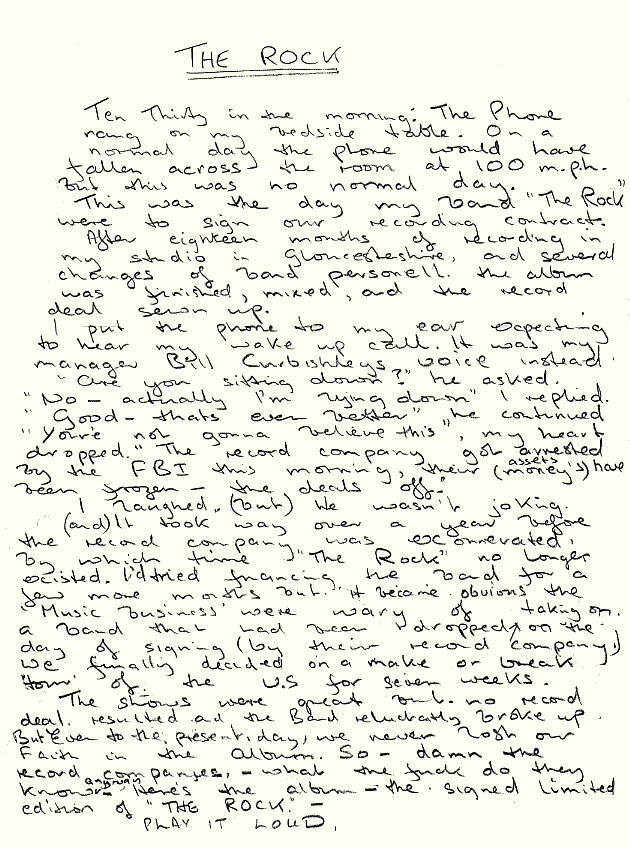 THE ROCK
Ten Thirty in the morning: The Phone
rang on my bedside table. On a
normal day the phone would have
fallen across the room at 100 m.p.h.
but this was no normal day.
This was the day my band "The Rock"
were to sign our recording contract.
After eighteen months of recording in
my studio in Gloucesteshire, and several
changes of band personell. the album
was finished, mixed, and the record
deal sewn up.
I put the phone to my ear expecting
to hear my wake up call. It was my
manager Bill Curbishleys voice instead.
"are you sitting down?" he asked.
"No - actually I'm lying down" I replied.
"Good - thats even better" he continued
"You're not gonna believe this", my heart
dropped. "The record company got arrested
by the FBI this morning, their (money's) assets have
been frozen - the deals off."
I laughed. (but) He wasn't joking.
(and) It took way over a year before
the record company was exonnerated,
by which time "The Rock" no longer
existed. I'd tried financing the band for a
few more months but it became obvious the
'Music business' were wary of taking on
a band that had been dropped on the
day of signing (by their record company,)
We finally decided on a make or break
'tour' of the U.S for seven weeks.
The shows were great but no record
deal resulted and the Band reluctantly broke up.
But Even to the present day, we never lost our
Faith in the album. So - damn the
record companies, - what the fuck do they
know anyway - here's the album - the signed limited
edition of "THE ROCK" -
PLAY IT LOUD.